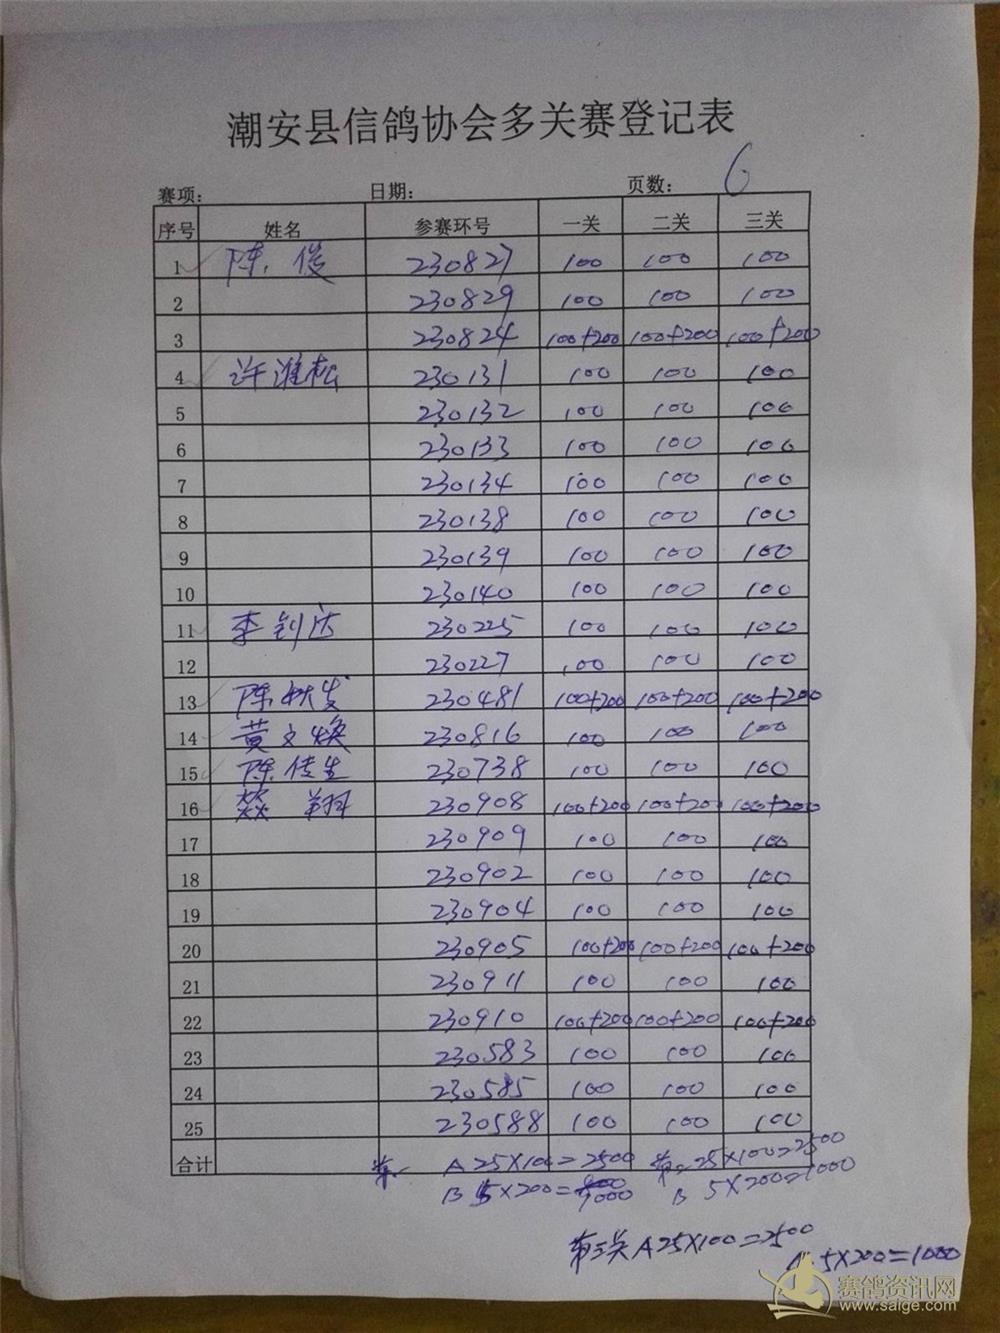 潮安县信鸽协会多关赛登记表
赛项: 日期: 页数: 6
序号 姓名 参赛环号 一关 二关 三关
1 陈俊 230827 100 100 100
2 230829 100 100 100
3 230824 100+200 100+200 100+200
4 许淮松 230131 100 100 100
5 230132 100 100 100
6 230133 100 100 100
7 230134 100 100 100
8 230138 100 100 100
9 230139 100 100 100
10 230140 100 100 100
11 李钊达 230225 100 100 100
12 230227 100 100 100
13 陈 230481 100+200 100+200 100+200
14 黄文焕 230816 100 100 100
15 陈传生 230738 100 100 100
16 翔 230908 100+200 100+200 100+200
17 230909 100 100 100
18 230902 100 100 100
19 230904 100 100 100
20 230905 100+200 100+200 100+200
21 230911 100 100 100
22 230910 100+200 100+200 100+200
23 230583 100 100 100
24 230585 100 100 100
25 230588 100 100 100
合计 第一 A 25×100=2500 第二 25×100=2500
B 5×200=1000 B 5×200=1000
第三关 A 25×100=2500
5×200=1000
赛鸽资讯网
www.saige.com